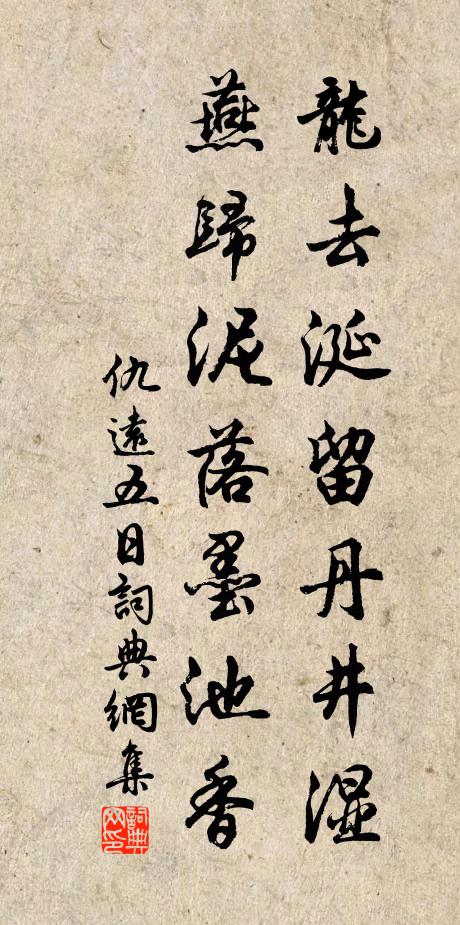 龍去涎留丹井湿
燕歸泥落墨池香
仇遠五日詞典網集
詞典網印